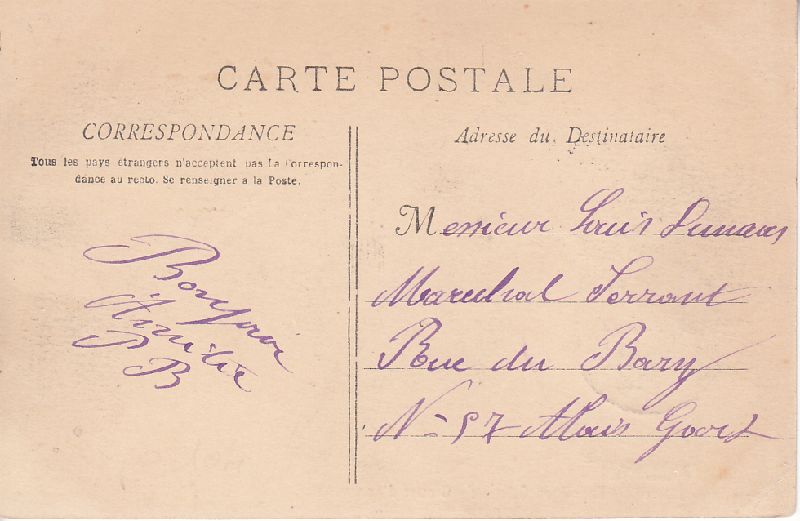 CARTE POSTALE
CORRESPONDANCE
Tous les pays étrangers n'acceptent pas la Correspon-
dance au recto. Se renseigner a la Poste.
Bonjour
Amitié
PB
Adresse du Destinataire
Monsieur Louis
Marechal Ferrant
Rue du Bary
N-57 Alais Gard